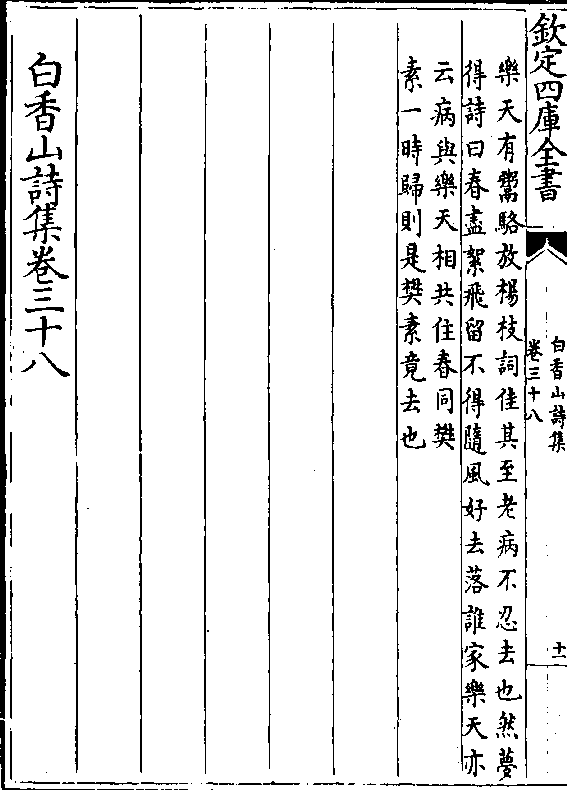 欽定四庫全書
白香山詩集
卷三十八
十一
樂天有鬻駱放楊枝詞佳其至老病不忍去也然夢
得詩曰春盡絮飛留不得隨風好去落誰家樂天亦
云病與樂天相共住春同樊
素一時歸則是樊素竟去也
白香山詩集卷三十八